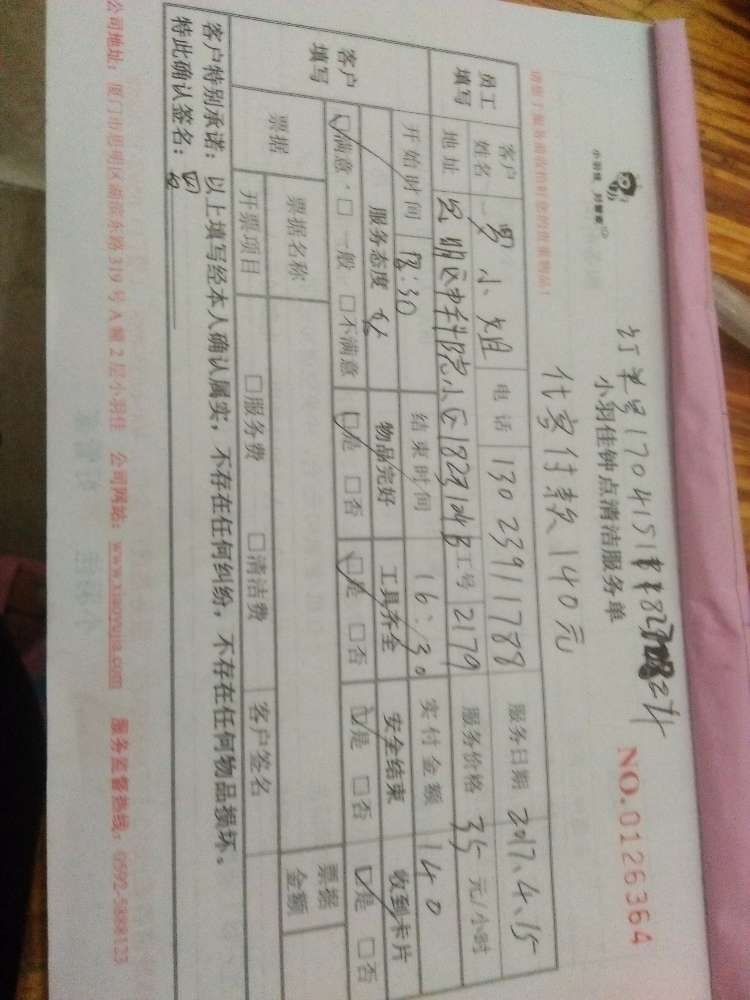 订单号1704151
小羽佳钟点清洁服务单
NO.0126364
代客付款140元
请您于服务前收拾好您的贵重物品！
员工填写
客户姓名 小姐 电话 13023911788 服务日期 2017.4.15
地址 思明区中科院小区18231#B 工号 2179 服务价格 35 元/小时
客户填写
开始时间 12:30 结束时间 16:30 实付金额 140
服务态度 物品完好 工具齐全 安全结束 收到卡片
☑满意 □一般 □不满意 ☑是 □否 ☑是 □否 ☑是 □否 ☑是 □否
票据 票据名称 票据金额
开票项目 □服务费 □清洁费 客户签名
客户特别承诺：以上填写经本人确认属实，不存在任何纠纷，不存在任何物品损坏。
特此确认签名：
公司地址：厦门市思明区湖滨东路319号A幢2层小羽佳 公司网站：www.xiaoyujia.com 服务监督热线：0592-5888123